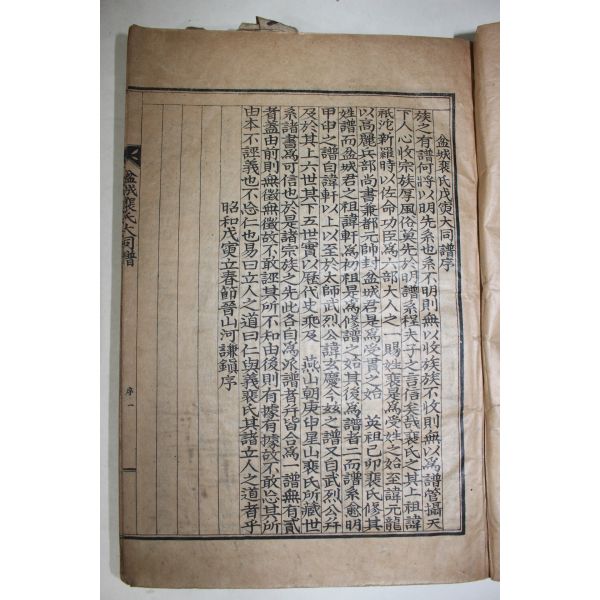 盆城裵氏戊寅大同譜序
族之有譜何將以明先系也系不明則無以收族族不收則無以爲譜管攝天
下人心收宗族厚風俗莫先於明譜系程夫子之言信矣哉裵氏之其上祖諱
祇沱新羅時以佐命功臣爲六部大人之一 賜姓裵是爲受姓之始至諱元龍
以高麗兵部尚書兼都元帥封盆城君是爲受貫之始 英祖己卯裵氏修其
姓譜而盆城君之祖諱軒爲初祖是爲修譜之始其後爲譜者二而譜系愈明
甲申之譜自諱軒以上以至於太師武烈公諱玄慶今玆之譜又自武烈公幷
及於其上六世其下五世實以歷代史乘及 燕山朝庚申星山裵氏所藏世
系諸書爲可信也於是諸宗族之先此各自爲派譜者幷皆合爲一譜無有貳
者盖由前則無徵無徵故不敢誣其所不知由後則有據有據故不敢忘其所
由本不誣義也不忘仁也易曰立人之道曰仁與義裵氏其諸立人之道者乎
昭和戊寅立春節晉山河謙鎭序
盆城裵氏大同譜
序 一